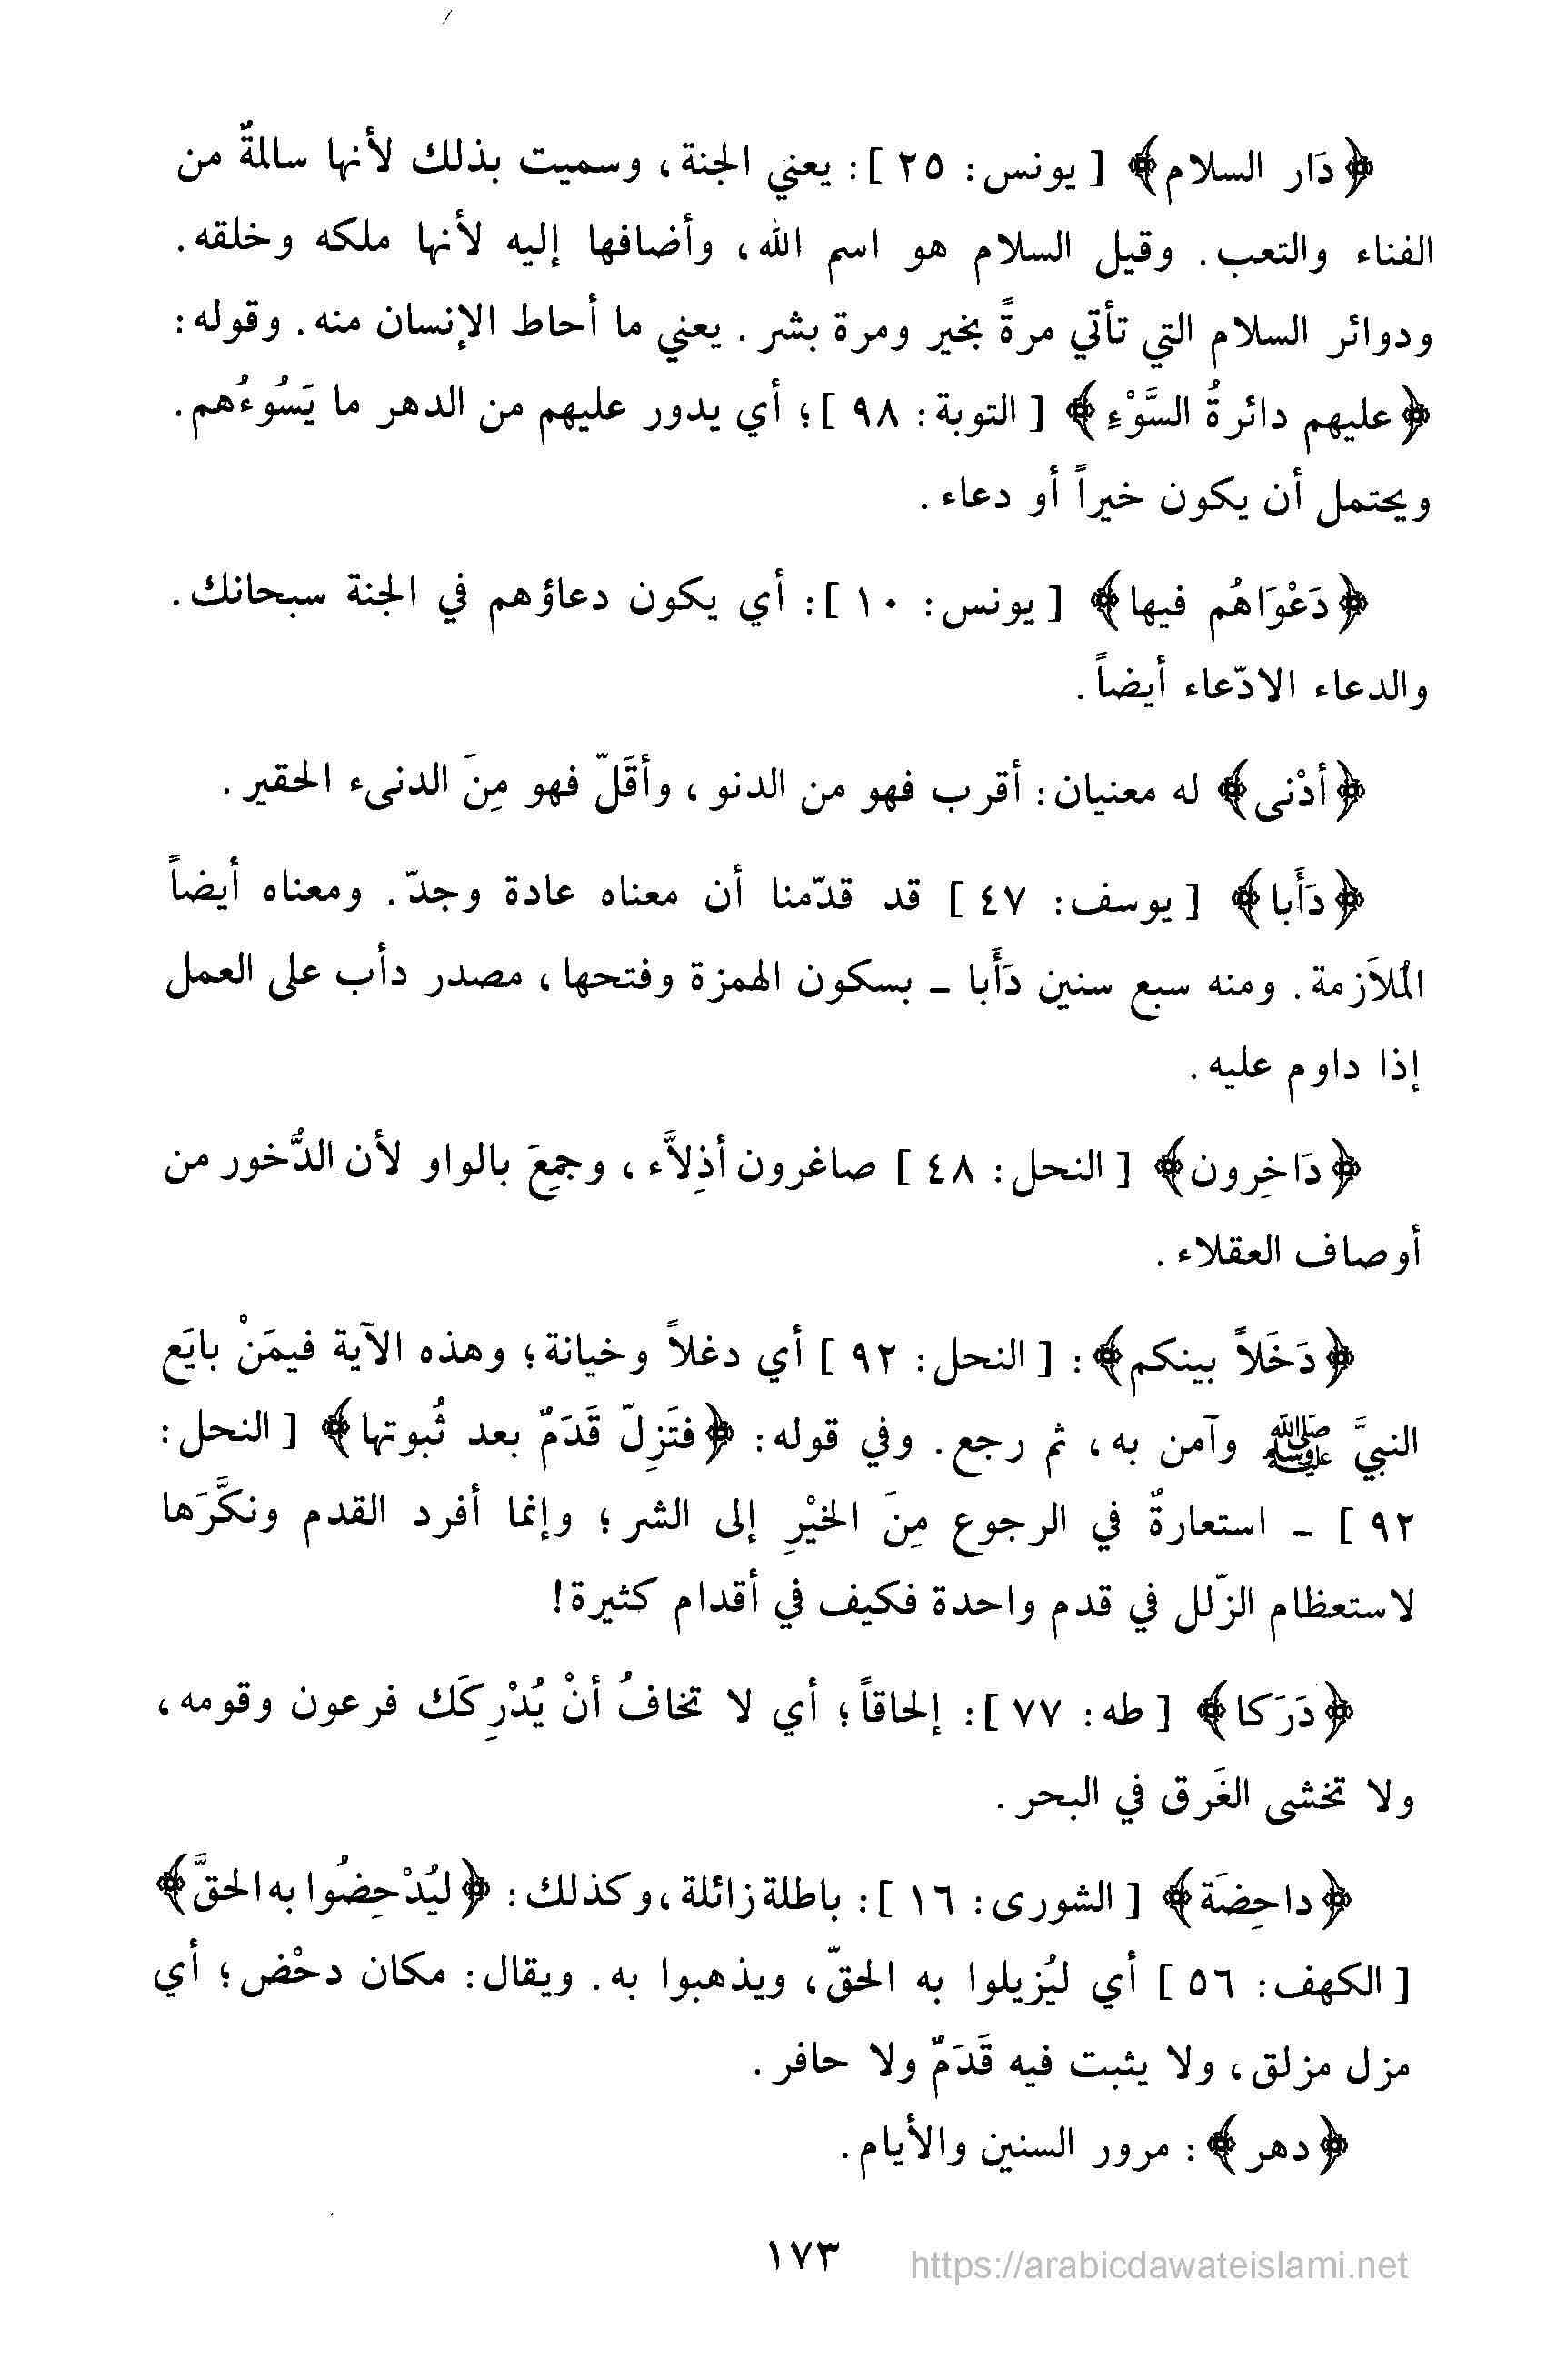 ﴿دَار السلام﴾ [ يونس: ٢٥ ]: يعني الجنة، وسميت بذلك لأنها سالمةٌ من
الفناء والتعب. وقيل السلام هو اسم الله، وأضافها إليه لأنها ملكه وخلقه.
ودوائر السلام التي تأتي مرةً بخير ومرة بشر. يعني ما أحاط الإنسان منه. وقوله:
﴿عليهم دائرةُ السَّوْءِ﴾ [ التوبة: ٩٨ ]؛ أي يدور عليهم من الدهر ما يَسُوءُهم.
ويحتمل أن يكون خيراً أو دعاء.
﴿دَعْوَاهُم فيها﴾ [ يونس: ١٠ ]: أي يكون دعاؤهم في الجنة سبحانك.
والدعاء الادّعاء أيضاً.
﴿أدْنى﴾ له معنيان: أقرب فهو من الدنو، وأقَلّ فهو مِنَ الدنىء الحقير.
﴿دَأَبا﴾ [ يوسف: ٤٧ ] قد قدّمنا أن معناه عادة وجدّ. ومعناه أيضاً
المُلاَزمة. ومنه سبع سنين دَأَبا ـ بسكون الهمزة وفتحها، مصدر دأب على العمل
إذا داوم عليه.
﴿دَاخِرون﴾ [ النحل: ٤٨ ] صاغرون أذِلاَّء، وجمِعَ بالواو لأن الدُّخور من
أوصاف العقلاء.
﴿دَخَلاً بينكم﴾: [ النحل: ٩٢ ] أي دغلاً وخيانة؛ وهذه الآية فيمَنْ بايَع
النبيَّ ﷺ وآمن به، ثم رجع. وفي قوله: ﴿فتَزِلّ قَدَمٌ بعد ثُبوتها﴾ [ النحل:
٩٢ ] ـ استعارةٌ في الرجوع مِنَ الخيْرِ إلى الشر؛ وإنما أفرد القدم ونكَّرَها
لاستعظام الزّلل في قدم واحدة فكيف في أقدام كثيرة!
﴿دَرَكا﴾ [ طه: ٧٧ ]: إلحاقاً؛ أي لا تخافُ أنْ يُدْرِكَك فرعون وقومه،
ولا تخشى الغَرق في البحر.
﴿داحِضَة﴾ [ الشورى: ١٦ ]: باطلة زائلة، وكذلك: ﴿ليُدْحِضُوا به الحقَّ﴾
[ الكهف: ٥٦ ] أي ليُزيلوا به الحقّ، ويذهبوا به. ويقال: مكان دحْض؛ أي
مزل مزلق، ولا يثبت فيه قَدَمٌ ولا حافر.
﴿دهر﴾: مرور السنين والأيام.
١٧٣
https://arabicdawateislami.net